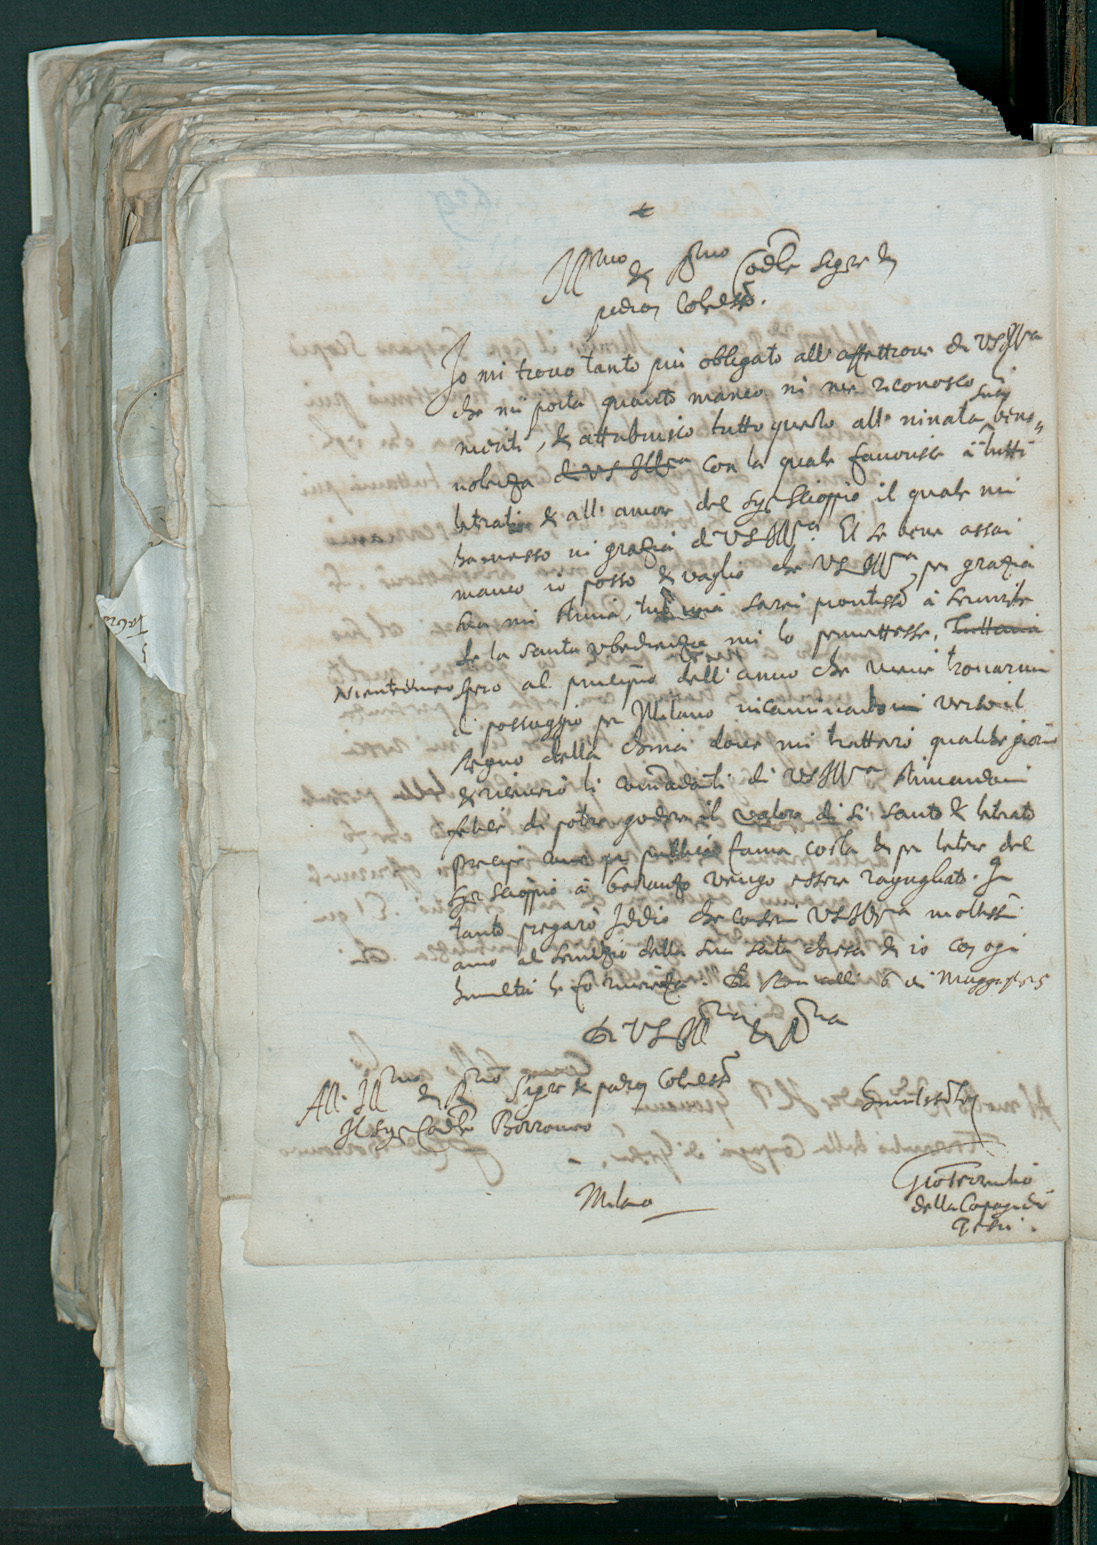 Ill.mo et R.mo Cardle Sigre et
padron Colmo.
Io mi trovo tanto più obligato all' affettione di VS Illma
che mi porta quanto manco in me riconosco
meriti, et attribuisco tutto questo alla innata sua bene=
volenza di VS Illma con la quale favorisce à tutti
letrati et all' amor del Sigr Scioppio il quale mi
ha messo in grazia di VS Illma. Et se bene assai
manco io posso et vaglio che VS Illma per grazia
sua mi stima, tuttavia sarei prontissº à servirle
se la santa obedienza mi lo permettesse, tuttavia
Nientedimeno spero al principio dell' anno che viene trovarmi
di passaggio per Milano incaminandomi verso il
Regno della China dove mi trattarò qualche giorno
et ricevirò li comandamti di VS Illma stimandomi
felice di poter godere il valore di si santo et letrato
Precipe come per publica fama costa et per letere del
Sigr Scioppio à bastanza vengo essere raguagliato. In
tanto pregarò Iddio che conservi VS Illma moltissimi
anni al servizio della sua santa chiesa et io con ogni
humiltà le fo riverenza. Di Roma alli 6 di Maggio 1615
Di VS Illma et Rma
All' Illmo et Rmo Sigre et padron Colmo
Il Sigr Cardle Borromeo
Humilissº
Milano
Gio Terrentio
della Compagnia di
Giesu.